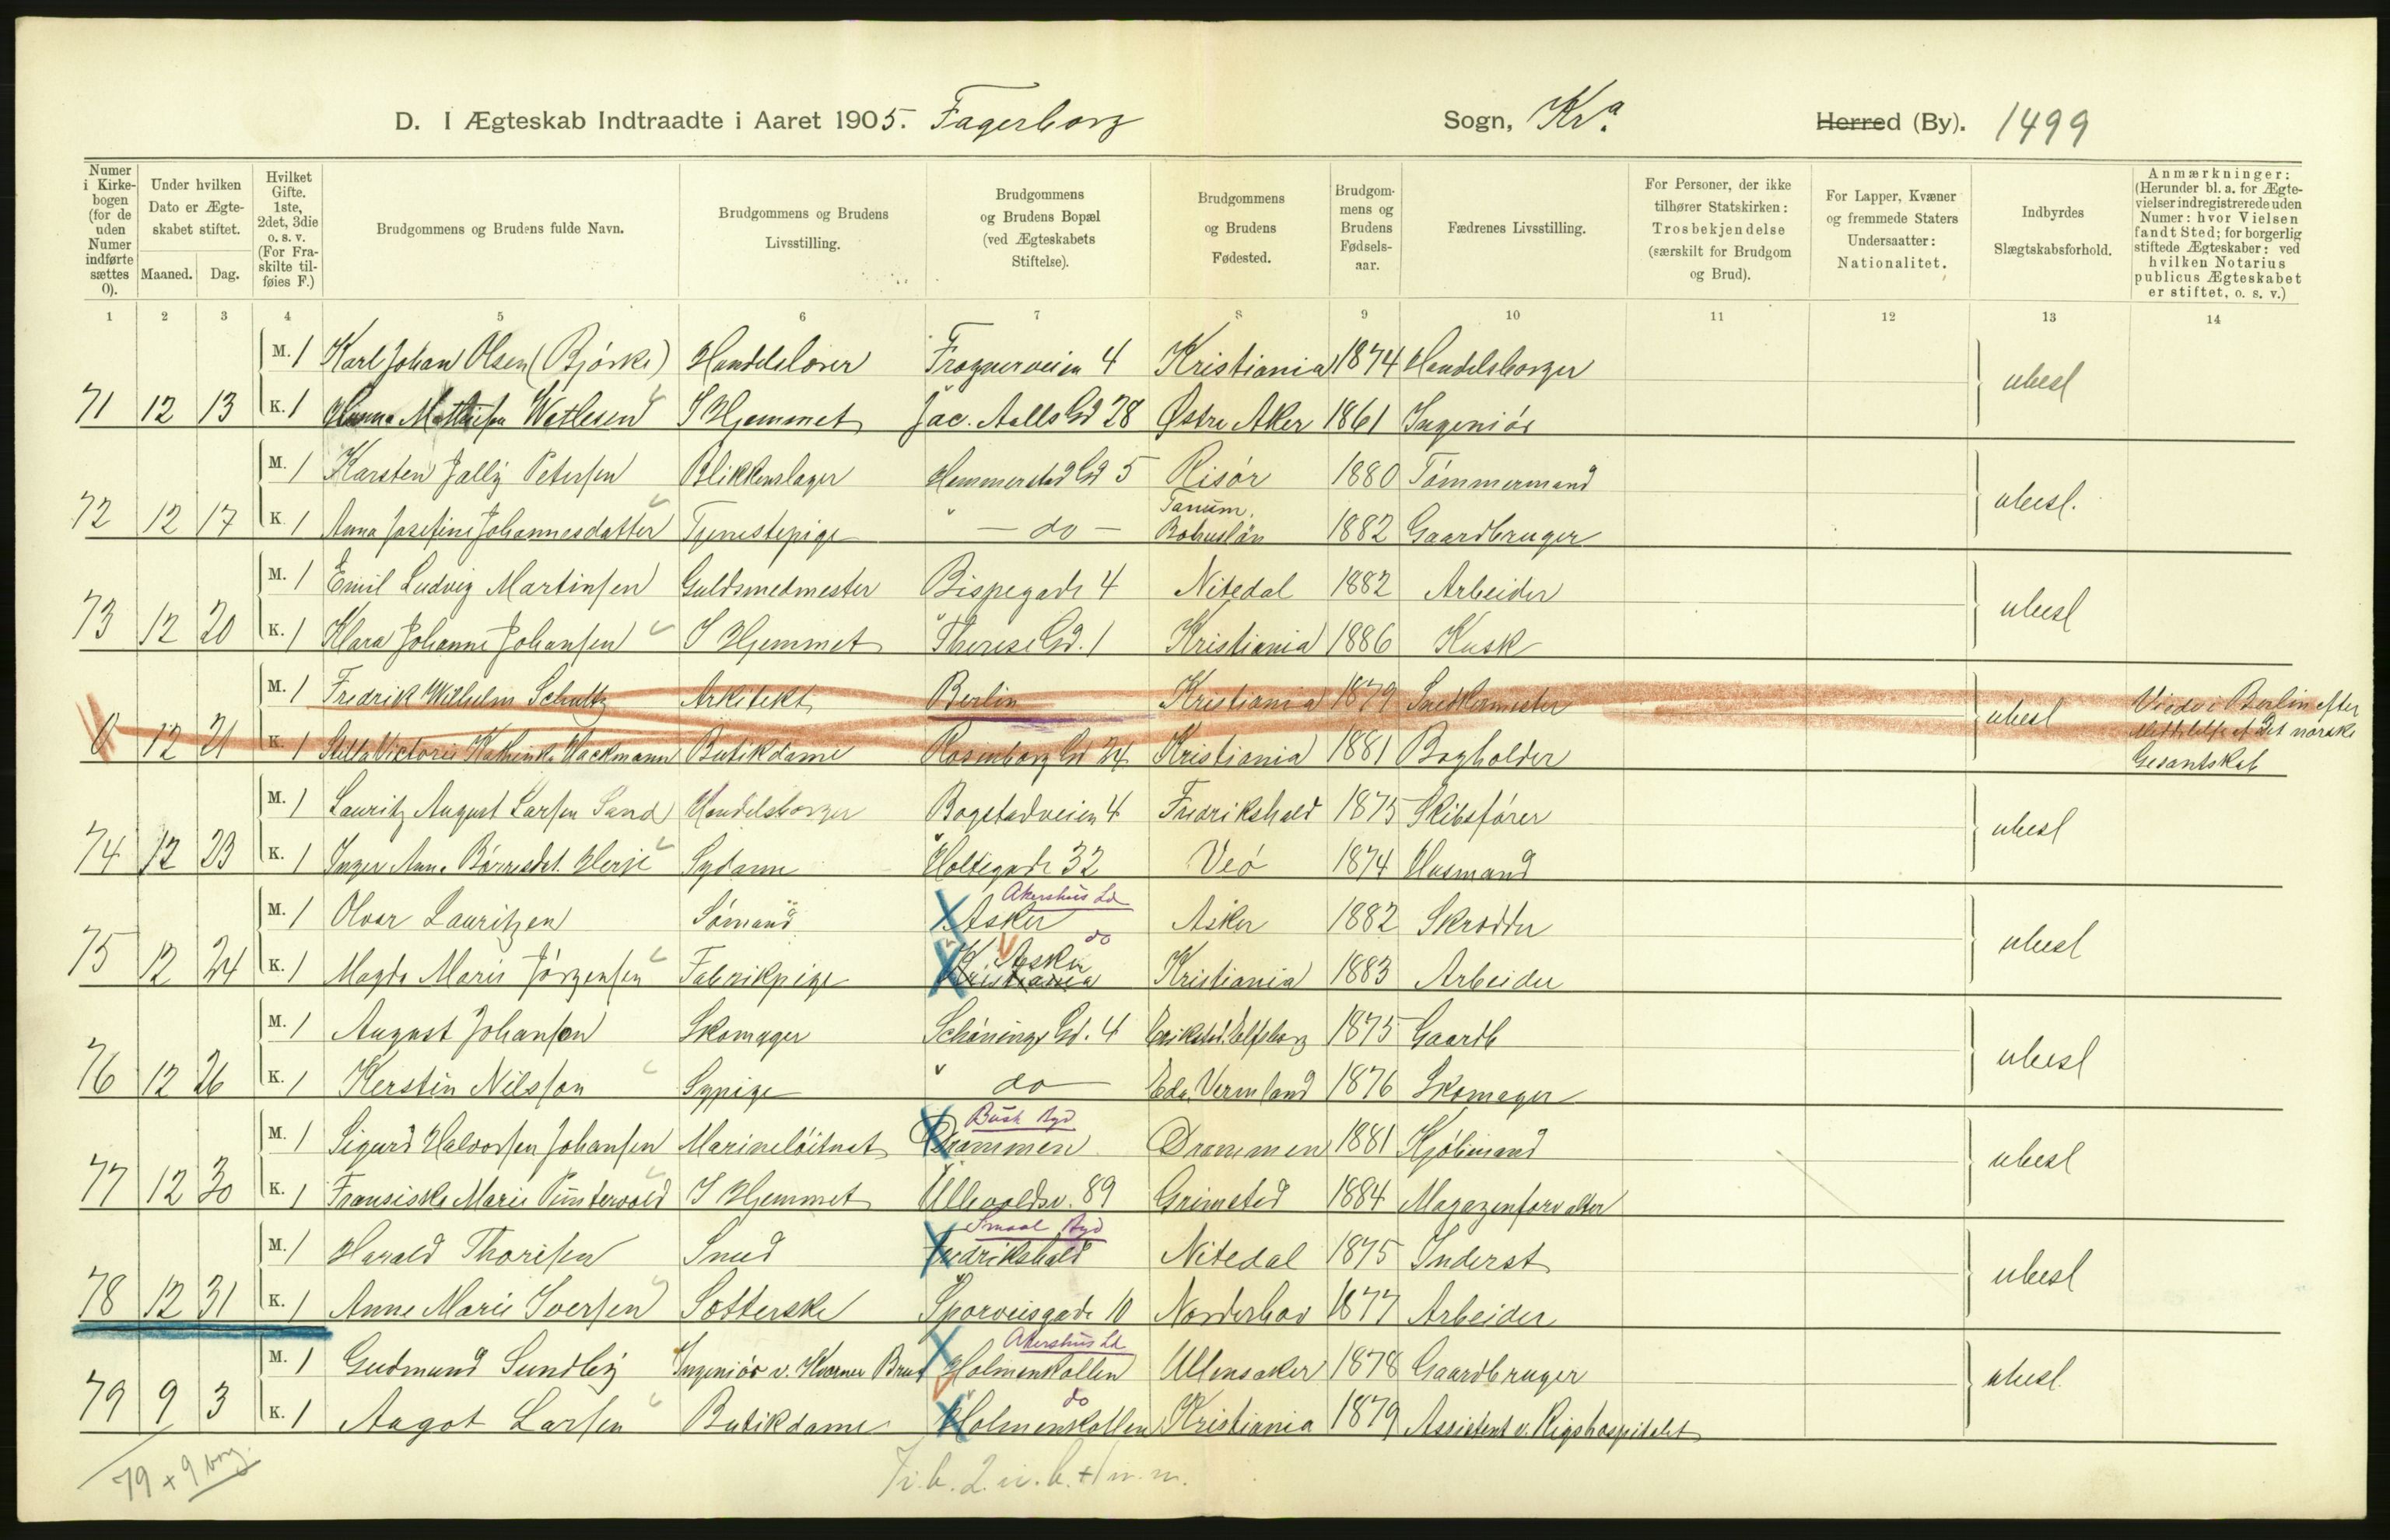 D. I Ægteskab Indtraadte i Aaret 1905. Fagerborg Sogn, Kra. Herred (By). 1499
Numer i Kirkebogen (for de uden Numer indførte sættes 0).
Under hvilken Dato er Ægteskabet stiftet.
Maaned. Dag.
Hvilket Gifte. 1ste, 2det, 3die o. s. v. (For Fraskilte tilføies F.)
Brudgommens og Brudens fulde Navn.
Brudgommens og Brudens Livsstilling.
Brudgommens og Brudens Bopæl (ved Ægteskabets Stiftelse).
Brudgommens og Brudens Fødested.
Brudgommens og Brudens Fødselsaar.
Fædrenes Livsstilling.
For Personer, der ikke tilhører Statskirken: Trosbekjendelse (særskilt for Brudgom og Brud).
For Lapper, Kvæner og fremmede Staters Undersaatter: Nationalitet.
Indbyrdes Slægtskabsforhold.
Anmærkninger: (Herunder bl. a. for Ægtevielser indregistrerede uden Numer: hvor Vielsen fandt Sted; for borgerlig stiftede Ægteskaber: ved hvilken Notarius publicus Ægteskabet er stiftet, o. s. v.)
1 2 3 4 5 6 7 8 9 10 11 12 13 14
M. 1 Karl Johan Olsen (Bjørke) Handelslærer Frognerveien 4 Kristiania 1874 Handelsborger
71 12 13 K. 1 Wetlesen I Hjemmet Jac. Aalls Gd 28 Østre Aker 1861 Ingeniør ubesl
M. 1 Karsten Jally Petersen Blikkenslager Hammerstad Gd 5 Risør 1880 Tømmermand
72 12 17 K. 1 Anna Josefine Johannesdatter Tjenestepige " — do — Tanum. Bohuslän 1882 Gaardbruger ubesl.
M. 1 Emil Ludvig Martinsen Guldsmedmester Bispegade 4 Nitedal 1882 Arbeider
73 12 20 K. 1 Klara Johanne Johansen I Hjemmet Therese Gd. 1 Kristiania 1886 Kusk ubesl
M. 1 Fredrik Wilhelm Schultz Arkitekt Berlin Kristiania 1879 Snedkermester
0 12 21 K. 1 Stella Victoria Kathinka Hackmann Butikdame Rosenborg Gd 24 Kristiania 1881 Bogholder ubesl Viede i Berlin efter Meddelelse af Det norske Gesantskab
M. 1 Lauritz August Larsen Sand Handelsborger Bogstadveien 4 Fredrikshald 1875 Skibsfører
74 12 23 K. 1 Inger Anna Børresdat. Herje Sydame Holtegade 32 Veø 1874 Husmand ubesl
M. 1 Olvar Lauritzen Sømand Akershus Ld Asker Asker 1882 Skrædder
75 12 24 K. 1 Magda Marie Jørgensen Fabrikpige do Asker Kristiania Kristiania 1883 Arbeider ubesl
M. 1 August Johanson Skomager Schønings Gd. 4 Erikstad. Elfsborg 1875 Gaardb
76 12 26 K. 1 Kerstin Nilsson Sypige " do Eda, Vermland 1876 Skomager ubesl
M. 1 Sigurd Halvorsen Johansen Marineløitnat Busk Byd Drammen Drammen 1881 Kjøbmand
77 12 30 K. 1 Fransiska Marie Pünterwold I Hjemmet Ullevoldsv. 89 Grimstad 1884 Magazinforvalter ubesl
M. 1 Harald Thorisen Smed Smaal Byd Fredrikshald Nitedal 1875 Inderst
78 12 31 K. 1 Anne Marie Iversen Sætterske Sporveisgade 10 Norderhov 1877 Arbeider ubesl
M. 1 Gudmund Sundby Ingeniør v. Kværner Brug Akershus Ld Holmenkollen Ullensaker 1878 Gaardbruger
79 9 3 K. 1 Aagot Larsen Butikdame do Holmenkollen Kristiania 1879 Assistent v. Rigshospitalet ubesl.
79 + 9 borg.
7 i. b. 2 u. b. + 1 m. m.